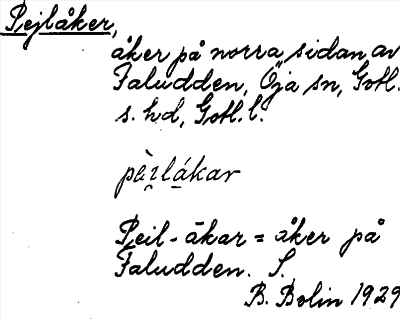 Pejlåker,
åker på norra sidan av
Faludden, Öja sn, Gotl.
s. hd, Gotl. l.
Peil-åkar = åker på
Faludden. S.
B. Bolin 1929